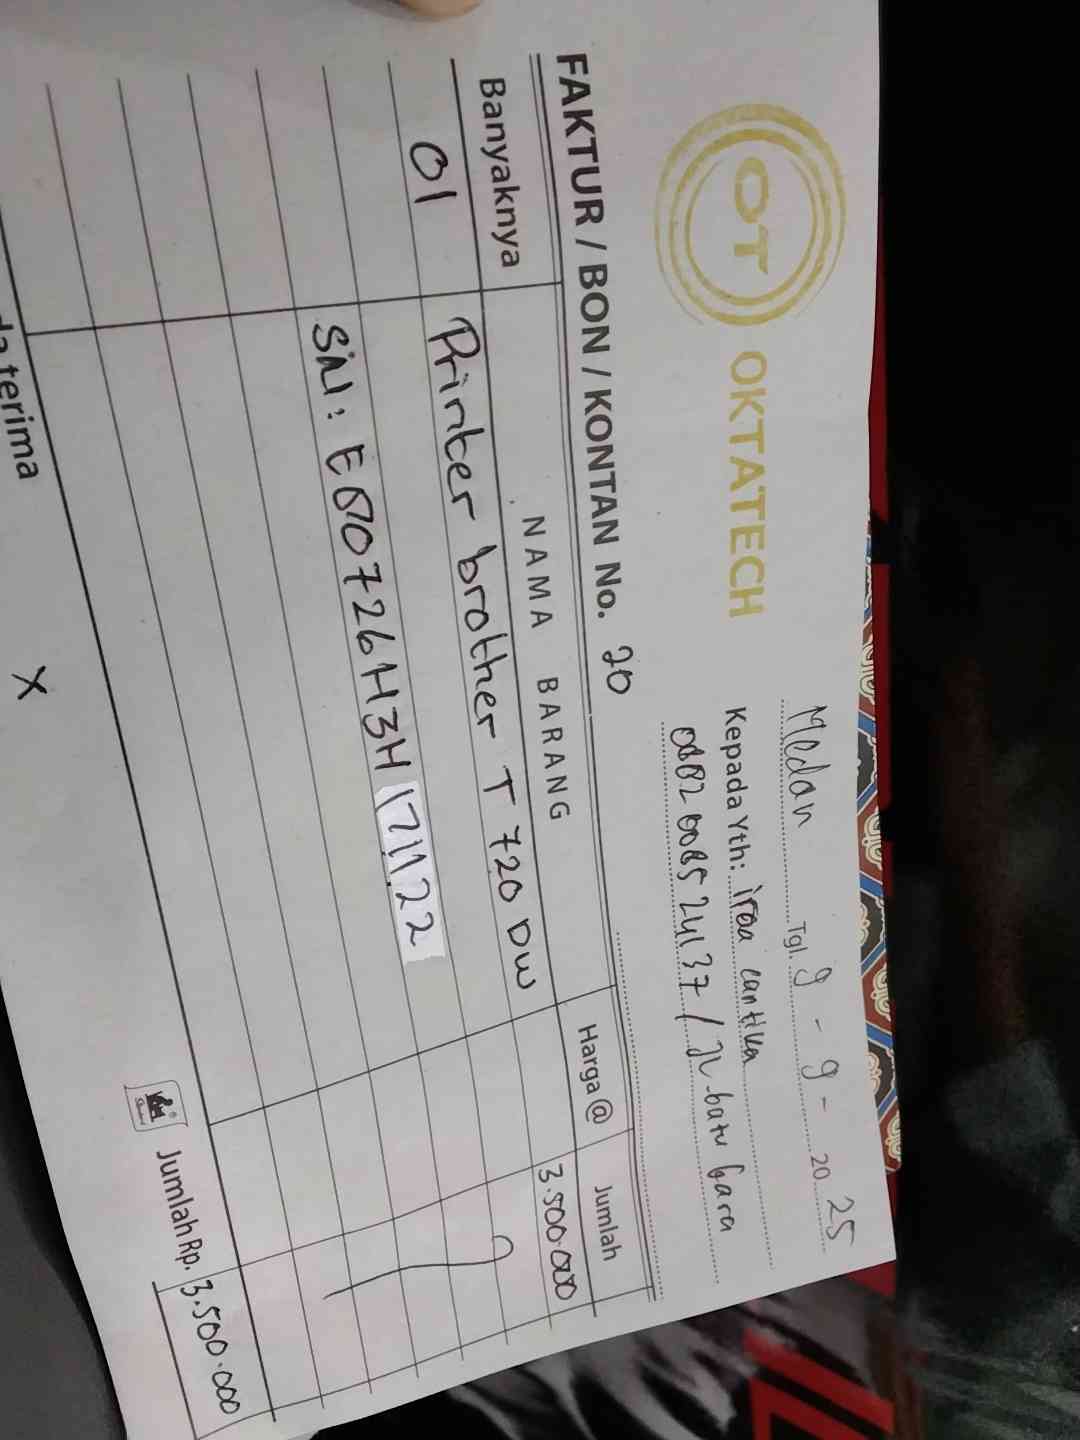 OT OKTATECH
Medan Tgl. 9 - 9 - 20 25
Kepada Yth: iraa cantika
088200852437 / Jl. batu bara
FAKTUR / BON / KONTAN No. 20
Banyaknya NAMA BARANG Harga @ Jumlah
01 Printer brother T 720 DW 3.500.000
S/N: E80726H3H 171122
Jumlah Rp. 3.500.000
terima
X